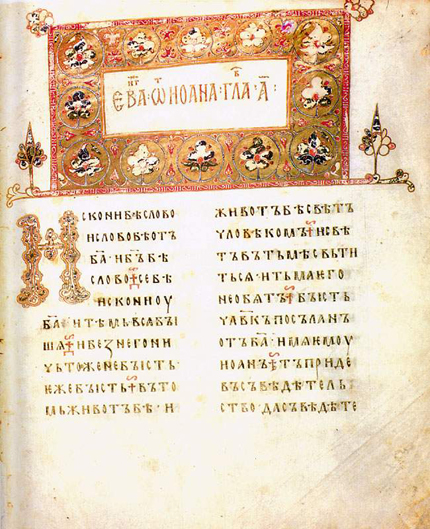 ЕВА҃·Ѡ ИОАНА·ГЛА·А҃:
ИСКОНИБѢСЛОВО
ИСЛОВОБѢОТЪ
БА҃·ИБ҃ЪБѢ
СЛОВО·СЕБѢ
ИСКОНИОУ
БА҃·ИТѢМЬВЬСꙖБЫ
ШѦ·ИБЕЗНЕГОНИ
ЧЬТОЖЕНЕБЫСТЬ·
ѤЖЕБЫСТЬ·ВЪТО
МЬЖИВОТЪБѢ·И
ЖИВОТЪБѢСВѢТЪ
ЧЛОВѢКОМЪ·ИСВѢ
ТЪВЪТЬМѢСВЬТИ
ТЬСѦ·ИТЬМАѤГО
НЕОБѦТЪ·БЫСТЬ
ЧЛ҃ВКЪПОСЪЛАНЪ
ОТЪБА҃·ИМѦѤМОУ
ИОАНЪ·ТЪПРИДЕ
ВЪСЪВѢДѢТЕЛЬ
СТВО·ДАСЪВѢДѢТЕ